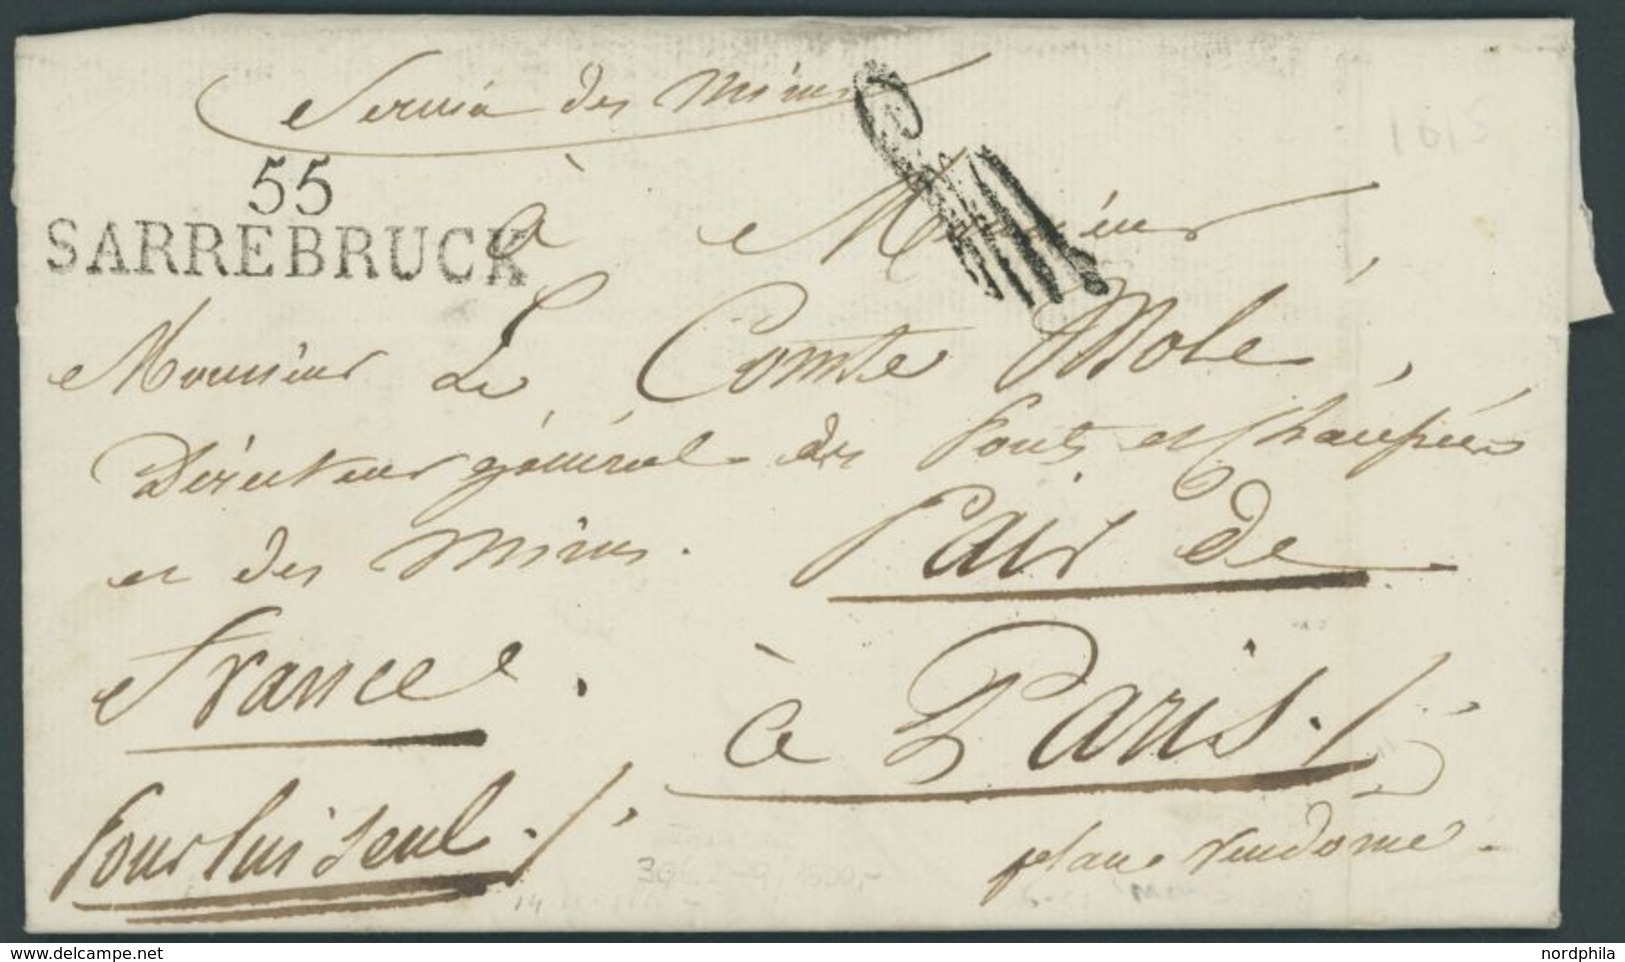 Service des Mines
55
SARREBRUCK
à Monsieur
Monsieur Le Comte Molé,
Directeur général des Ponts et Chaussées
et des Mines. Pair de
France.
à Paris./.
Pour lui seul./.
place Vendôme.
1815
3962-9 1500,-
www.delcampe.net
nordphila